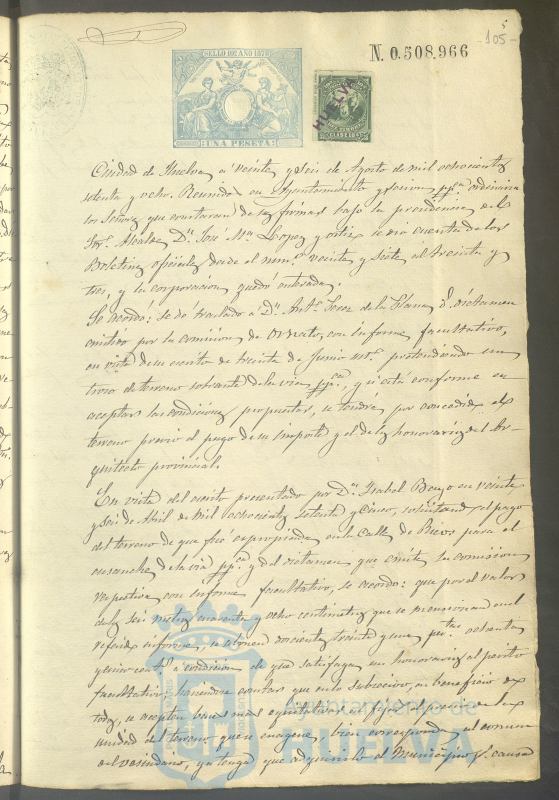 -105-
N. 0.508.966
SELLO 10º AÑO 1878
UNA PESETA
HUELVA
Ciudad de Huelva a veinte y seis de Agosto de mil ochocientos
setenta y ocho. Reunidos en Ayuntamiento y sesion ppca. ordinaria
los Señores que constaran de sus firmas bajo la presidencia del
Sor. Alcalde Dn. José Mª Lopez y Ortiz se dio cuenta de los
Boletines oficiales desde el num. veinte y siete al treinta y
tres, y la corporacion quedó enterada.
Se acordo: se dé traslado a Dn. Antº. de la del dictamen
emitido por la comision de ornato, con informe facultativo,
en vista de su escrito de treinta de Junio ult. pretendiendo un
trozo de terreno sobrante de la via ppca., y si está conforme en
aceptar las condiciones propuestas, se tendrá por concedido el
terreno previo el pago de su importe y el de los honorarios del Ar-
quitecto provincial.
En vista del escrito presentado por Dª. Isabel en veinte
y seis de Abril de mil ochocientos setenta y cinco, solicitando el pago
del terreno de que fue expropiada en la calle de para el
ensanche de la via ppca. y del dictamen que emite la comision
respectiva con informe facultativo, se acordo: que por el valor
de los seis metros cuarenta y ocho centimetros que se mencionan en el
referido informe, se abonen doscientas treinta y una pestas. ochenta
y cinco cents. a condicion de que satisfaga sus honorarios al perito
facultativo: haciendose constar que en lo subcesivo, en beneficio de
todos, se acepten bases mas equitativas al fijar el precio de la
unidad del terreno que se enagene, bien corresponda al comun
del vecindario, ya tenga que adquirirlo el Municipio p. causa
Ayuntamiento de
HUELVA